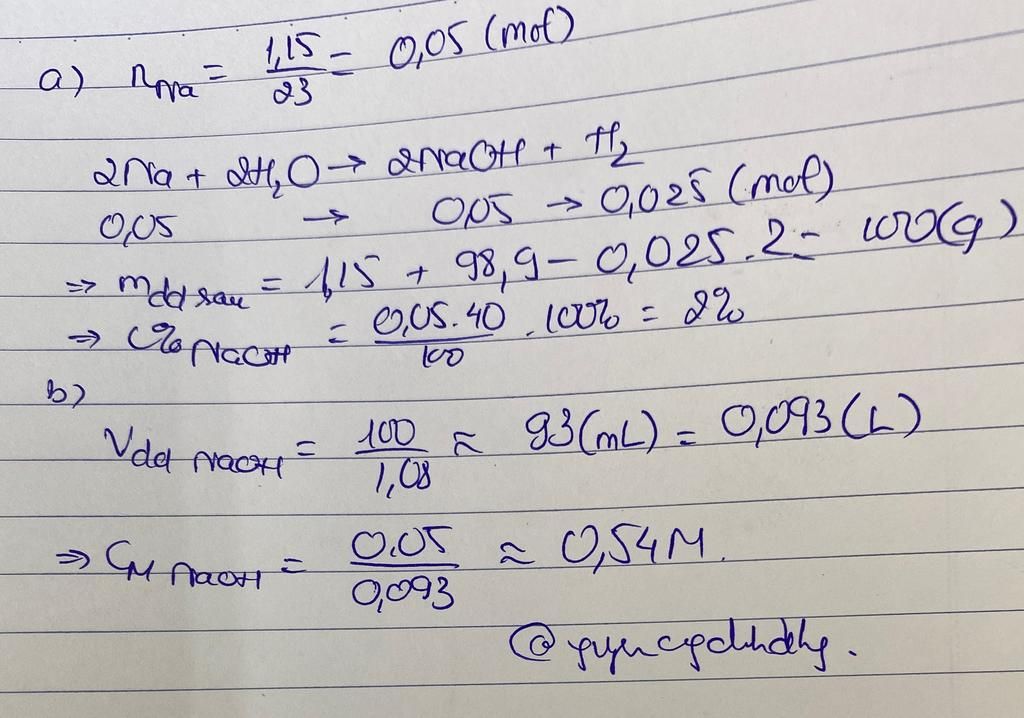 a) nNa = 1,15/23 = 0,05 (mol)
2Na + 2H2O → 2NaOH + H2
0,05 → 0,05 → 0,025 (mol)
⇒ mdd sau = 1,15 + 98,9 - 0,025.2 = 100(g)
⇒ C% NaOH = 0,05.40/100 . 100% = 2%
b)
Vdd NaOH = 100/1,08 ≈ 93(mL) = 0,093(L)
⇒ CM NaOH = 0.05/0,093 ≈ 0,54M.